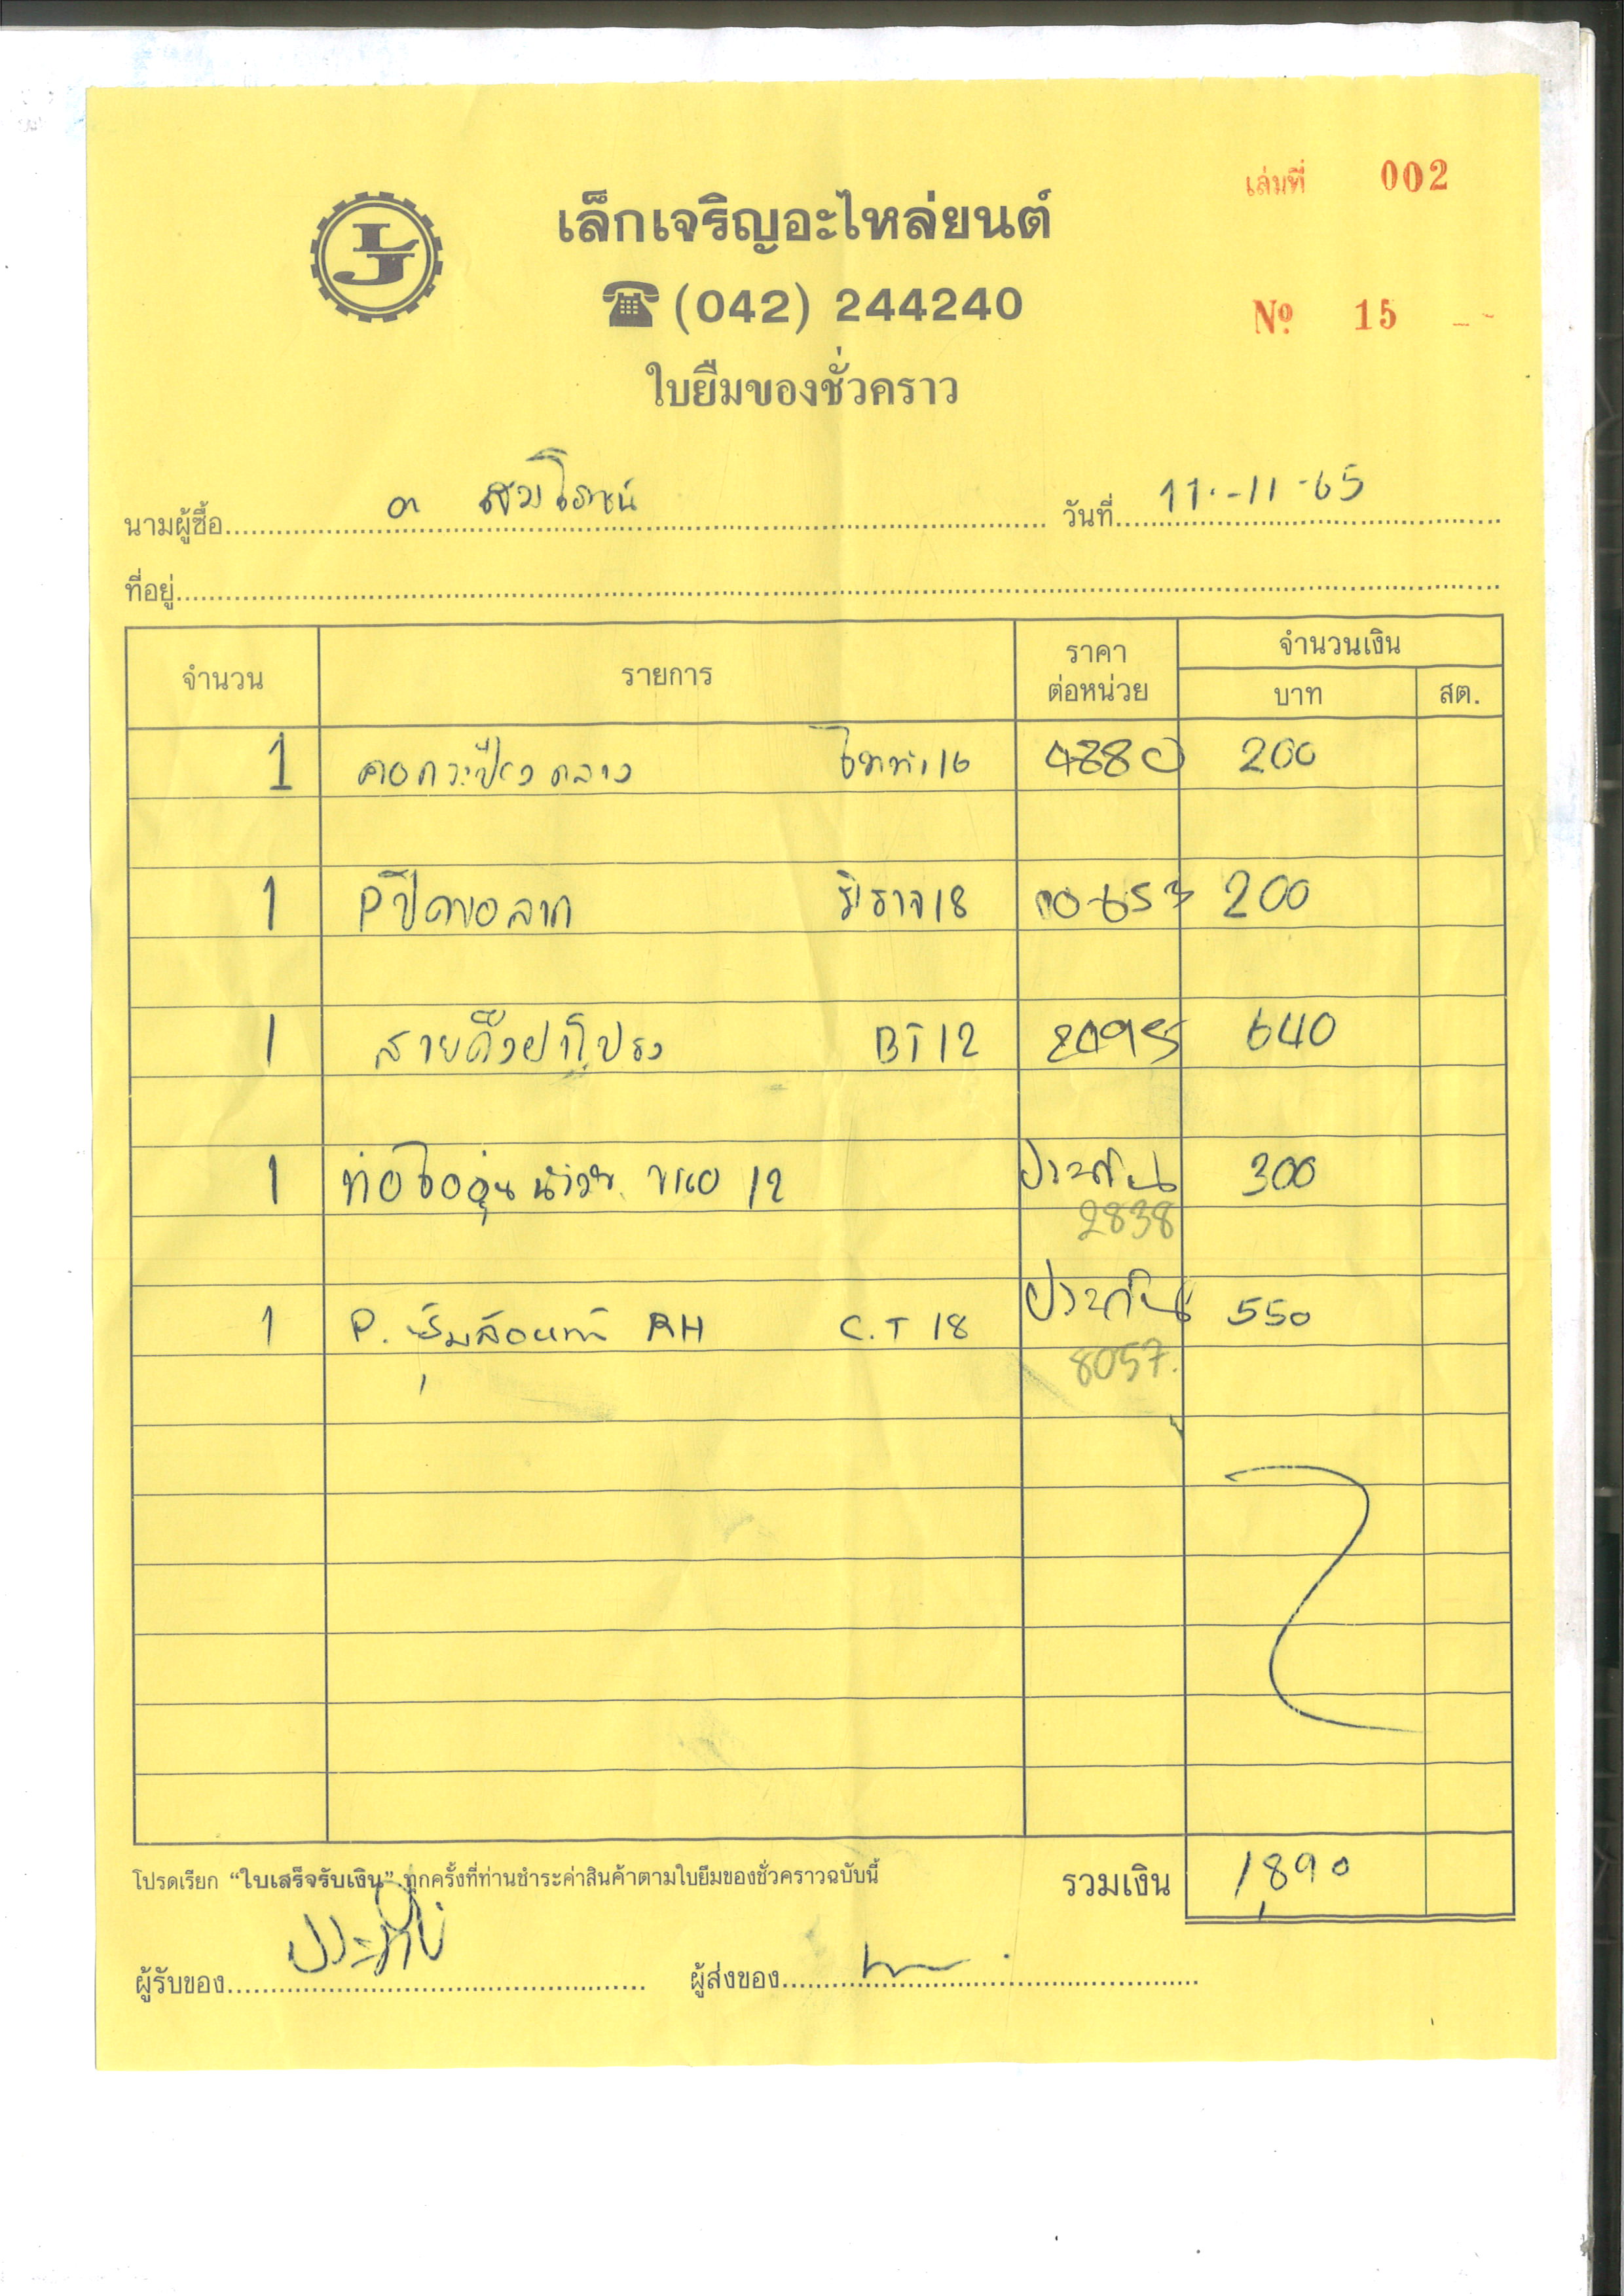 เล่มที่ 002
เล็กเจริญอะไหล่ยนต์
(042) 244240
Nº 15
ใบยืมของชั่วคราว
นามผู้ซื้อ วันที่ 11-11-65
ที่อยู่
จำนวน รายการ ราคาต่อหน่วย จำนวนเงิน
บาท สต.
1 คอกระป๋อง กลาง 16 4880 200
1 Pปิดขอลาก 18 200
1 สายดึงฝากระโปรง BT12 640
1 ท่อไออุ่น 12 ประกัน 300
2838
1 P. ซุ้มล้อหน้า RH C.T 18 ประกัน 550
8057.
โปรดเรียก “ใบเสร็จรับเงิน” ทุกครั้งที่ท่านชำระค่าสินค้าตามใบยืมของชั่วคราวฉบับนี้ รวมเงิน 1,890
ผู้รับของ ผู้ส่งของ